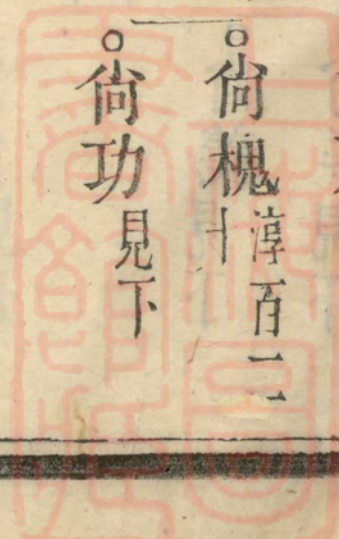 ○尙槐淳百二十
○尙功見下